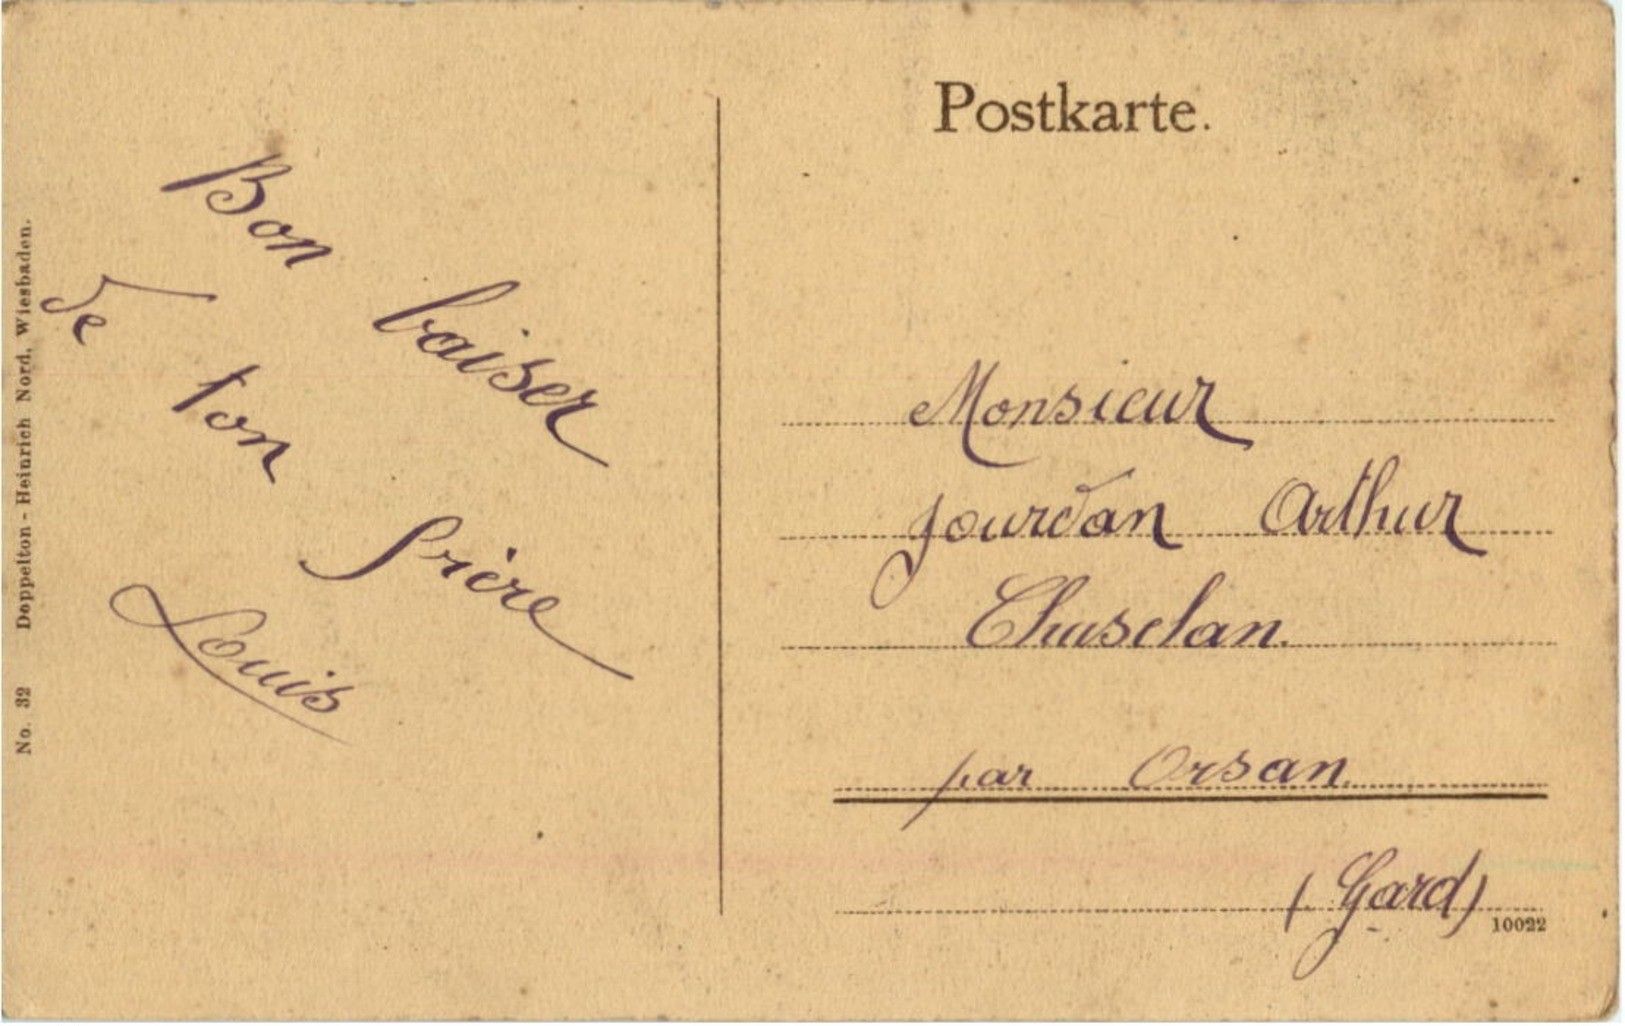 Postkarte.
Bon baiser
de ton frère
Louis
Monsieur
Jourdan Arthur
Chusclan.
par Orsan.
(Gard)
10022
No. 32 Doppelton - Heinrich Nord, Wiesbaden.